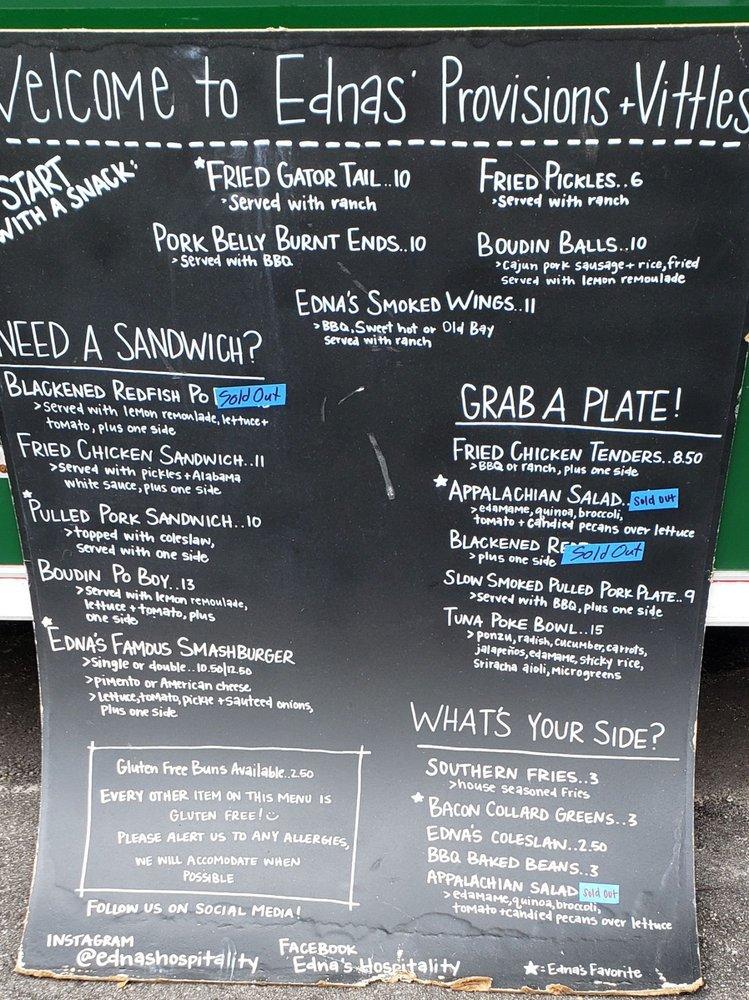 Welcome to Ednas' Provisions + Vittles
START
WITH A SNACK:
*FRIED GATOR TAIL..10
>Served with ranch
FRIED PICKLES..6
>Served with ranch
PORK BELLY BURNT ENDS..10
>Served with BBQ
BOUDIN BALLS..10
>Cajun pork sausage + rice, fried
served with lemon remoulade
EDNA'S SMOKED WINGS..11
>BBQ, Sweet hot or Old Bay
served with ranch
NEED A SANDWICH?
BLACKENED REDFISH PO Sold Out
>Served with lemon remoulade, lettuce +
tomato, plus one side
FRIED CHICKEN SANDWICH..11
>Served with pickles + Alabama
white sauce, plus one side
*PULLED PORK SANDWICH..10
>topped with coleslaw,
served with one side
BOUDIN PO BOY..13
>Served with lemon remoulade,
lettuce + tomato, plus
one side
*EDNA'S FAMOUS SMASHBURGER
>Single or double..10.50|12.50
>pimento or American cheese
>Lettuce, tomato, pickle + sauteed onions,
Plus one side
GRAB A PLATE!
FRIED CHICKEN TENDERS..8.50
>BBQ or ranch, plus one side
★APPALACHIAN SALAD.. Sold out
>edamame, quinoa, broccoli,
tomato + candied pecans over lettuce
BLACKENED Sold Out
>plus one side
SLOW SMOKED PULLED PORK PLATE..9
>Served with BBQ, plus one side
TUNA POKE BOWL..15
>ponzu, radish, cucumber, carrots,
jalapeños, edamame, sticky rice,
Sriracha aioli, microgreens
WHAT'S YOUR SIDE?
SOUTHERN FRIES..3
>house seasoned fries
★BACON COLLARD GREENS..3
EDNA'S COLESLAW..2.50
BBQ BAKED BEANS..3
APPALACHIAN SALAD Sold out
>edamame, quinoa, broccoli,
tomato + candied pecans over lettuce
Gluten Free Buns Available..2.50
EVERY OTHER ITEM ON THIS MENU IS
GLUTEN FREE! ☺
PLEASE ALERT US TO ANY ALLERGIES,
WE WILL ACCOMODATE WHEN
POSSIBLE
FOLLOW US ON SOCIAL MEDIA!
INSTAGRAM
@ednashospitality
FACEBOOK
Edna's Hospitality
★ = Edna's Favorite